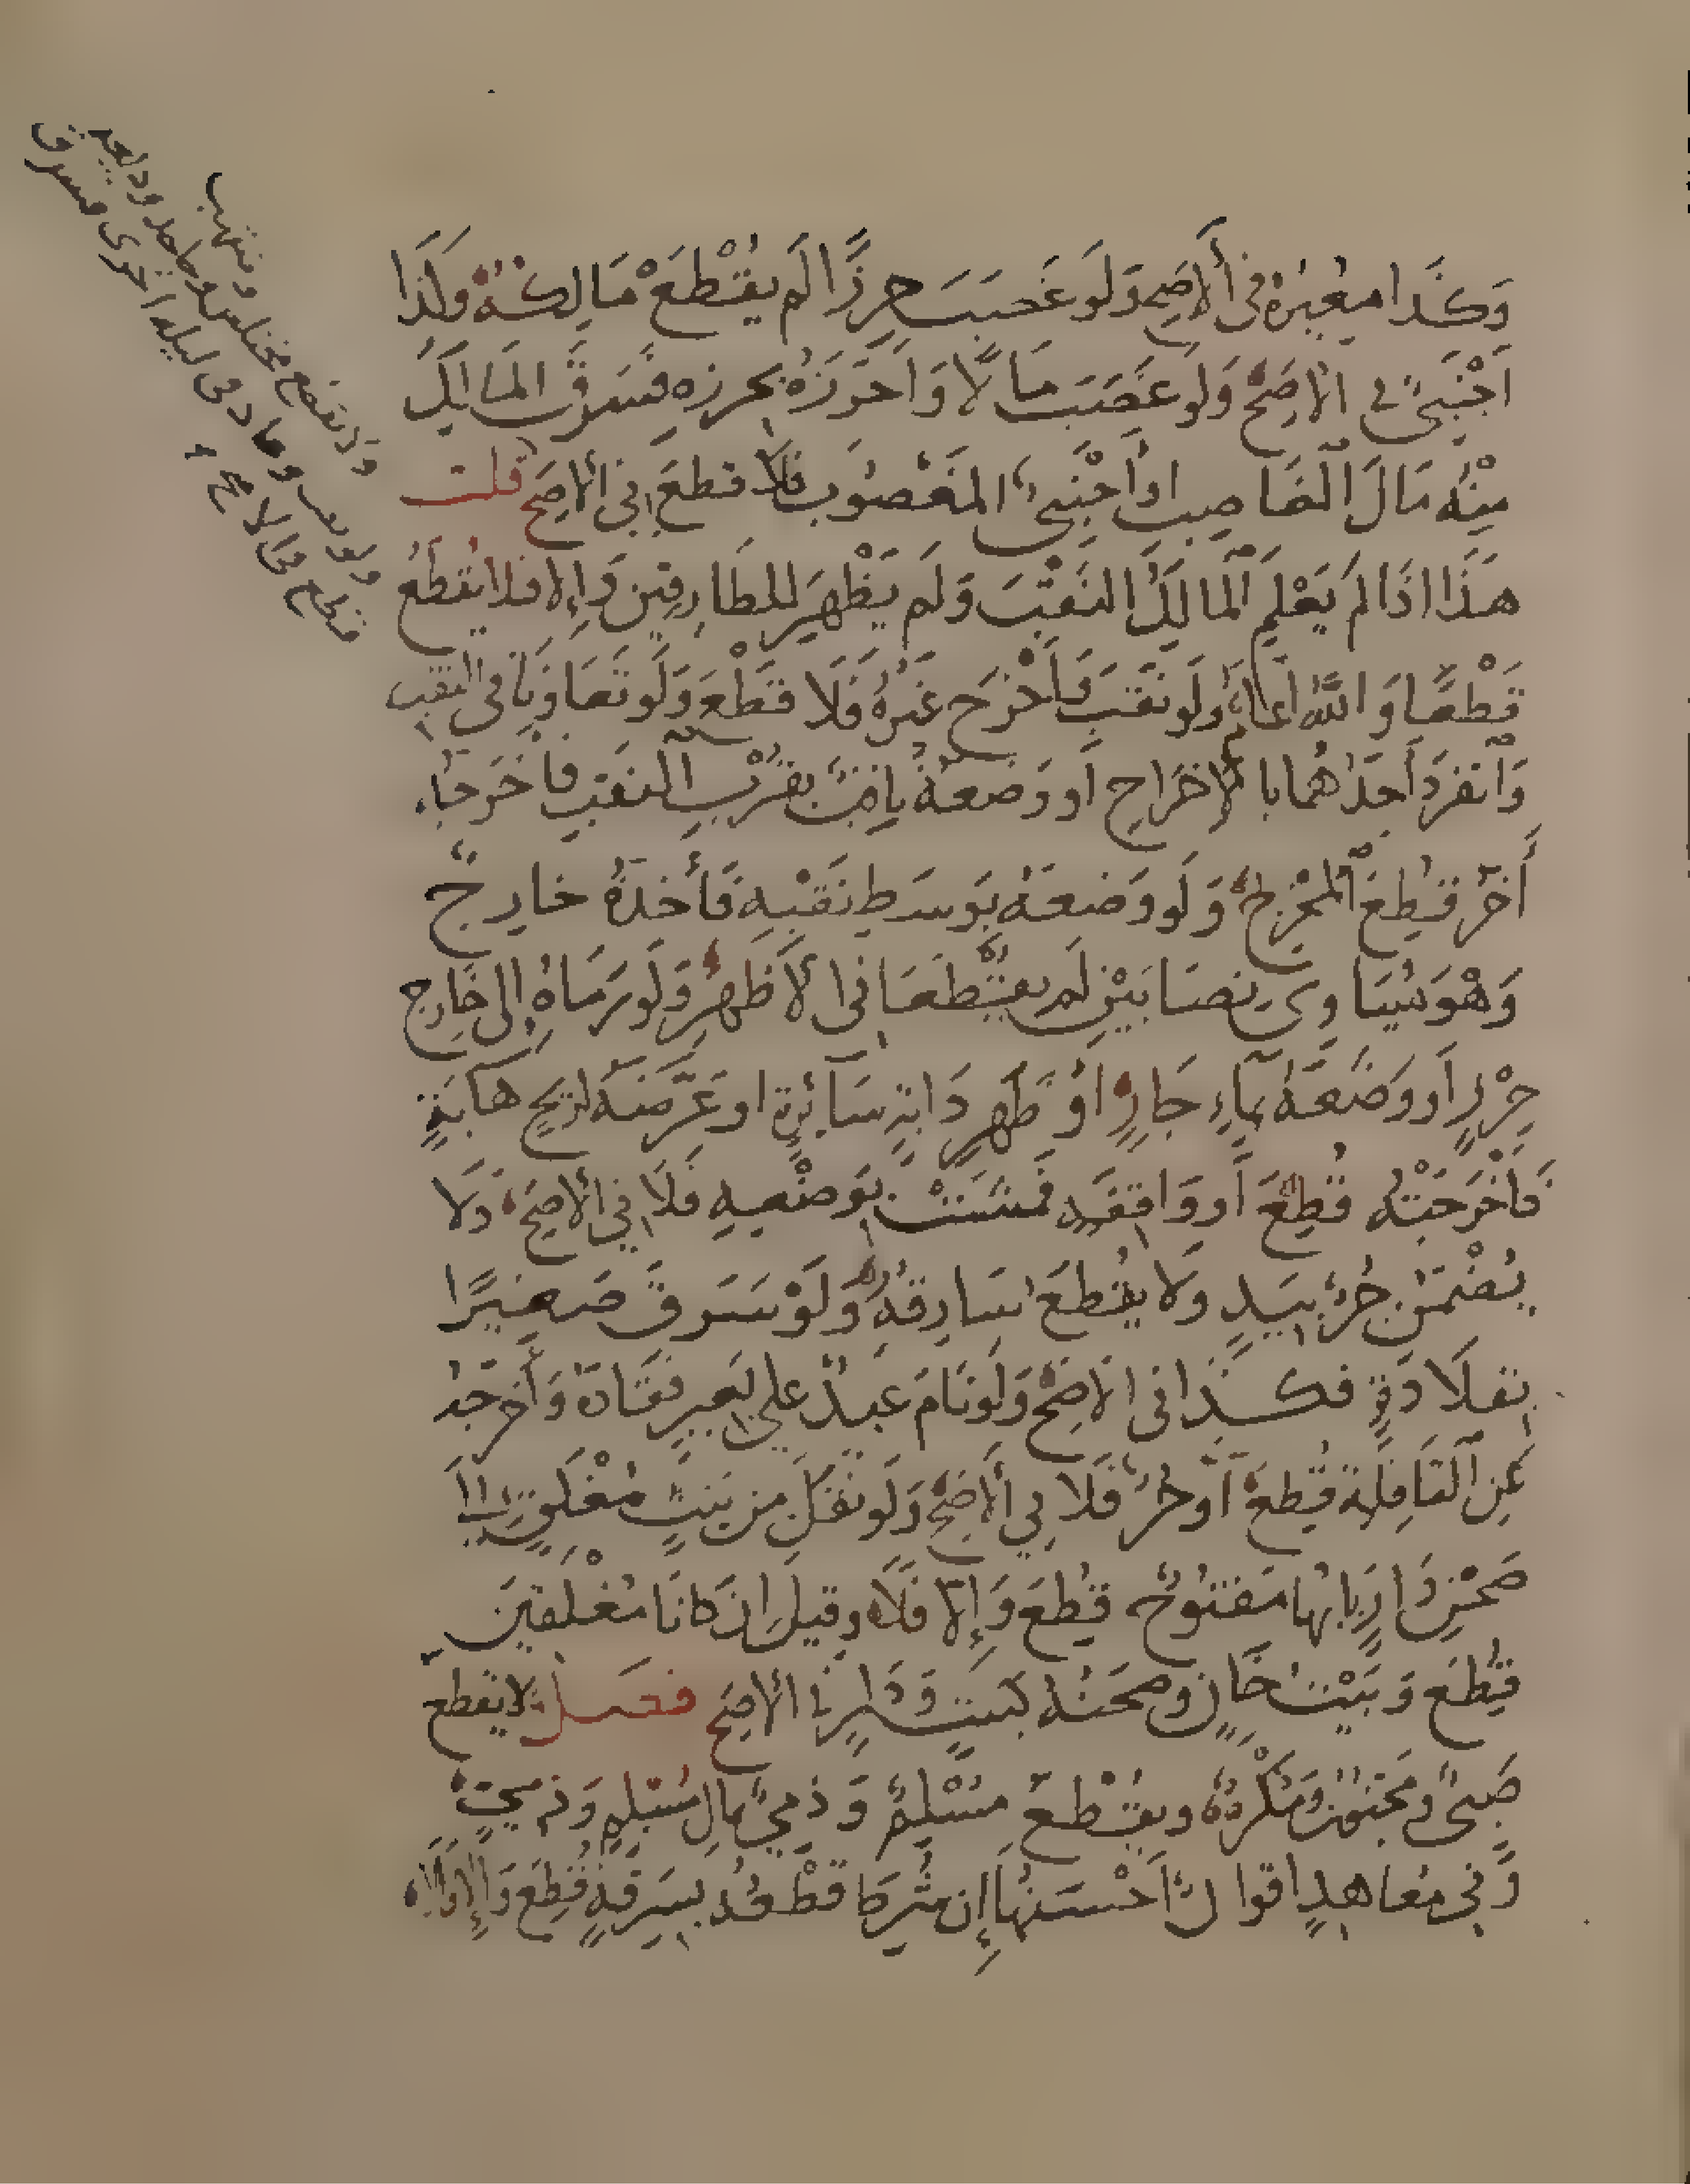 وَكَذَا مُعِيرُهُ في أَلاصَحِّ وَلَو غَصَبَ حِرزًا لَم يُقْطَعْ مَالِكُهُ وَكَذَا
اَجْنَبِيٌّ في الاصَحِّ وَلَو غَصَبَ مَالًا وَاَحرَزَهُ بحرزه فسَرَقَ المَالِكُ
مِنْهُ مَالَ الْغَاصِبِ اوأَجْنَبِيٌّ المَغْصُوبَ فَلَا قطعَ في ألاصَحِّ قلت
هَذَا اذَا لَم يَعْلَمِ الْمَالِكُ النَقْبَ وَلَم يَظْهَر للطَارِقين وَإِلا فلا يُقطَعُ
قَطْعًا وَاللَّهُ اعلمُ وَلَو نَقَبَ وَأَخْرَجَ غَيْرُهُ فَلَا قَطْعَ وَلَو تَعَاوَنَا في النقب
وَانفَردَ أَحَدُهُمَا بالإخرَاجِ أَو وَضَعَهُ نَاقِبٌ بقُرْبِ النقبِ فأخرجهُ
أَخرُ قُطِعَ الْمُخْرِجُ وَلَو وَضعَهُ بوَسَطِ نَقْبِهِ فَأَخذهُ خارِجٌ
وَهْوَ يُسَاوى نصَابَيْنِ لَم يُقْطَعَا في الأَظهَرِ وَلَو رَمَاهُ إلى خَارِج
حِرْزٍ أَو وَضَعَهُ بمَاءٍ جَارٍ اَوْ ظَهرِ دَابةٍ سَآئِرةٍ او عَرَّضَهُ لِرِيحٍ هَابَةٍ
فَأَخْرَجَتْهُ قُطِعَ اَو وَاقِفَةٍ فَمَشَتْ بوَضْعِهِ فَلَا في ألاصَحِّ وَلَا
يُضْمَنُ حُرٌّ بيَدٍ وَلا يُقطعُ سَارِقُهُ وَلَوْ سَرَقَ صَغِيرًا
بقلَادَةٍ فكَذَا في الاصَحِّ وَلَو نَامَ عَبدٌ علي بَعيرٍ فقَادَهُ وَأَخرَجَهُ
عَنِ القَافِلَة قُطِعَ اَوحُرٌّ فَلا في أَلاصَحِّ وَلَو نَقَلَ مِن بَيتٍ مُغْلَقٍ إلَى
صَحْنِ دَارٍ بَابُهَا مَفتُوحٌ قُطِعَ وَإِلا فَلَا وقيلَ ان كانَا مُغْلَقَينِ
قُطِعَ وَبَيْتُ خَانٍ وصَحنُهُ كبَيتٍ وَدَارٍ في ألاصَحِّ فصل لا يقطع
صَبيٌّ وَمَجنُونٌ وَمُكْرَهٌ ويُقْطَعُ مُسْلِمٌ وَذِميٌّ بمالِ مُسْلِمٍ وَذِميٍّ
وَفي مُعاهِدٍ اقوالٌ أَحْسَنُهَا إن شُرِطَ قَطْعُهُ بسَرِقَةٍ قُطِعَ وَإِلا فَلَا
ولا يقطع مختلس ومنتهب
وجاحد وديعة
ولو نقب وعاد في ليله اخرى فسرق
قطع في الاصح